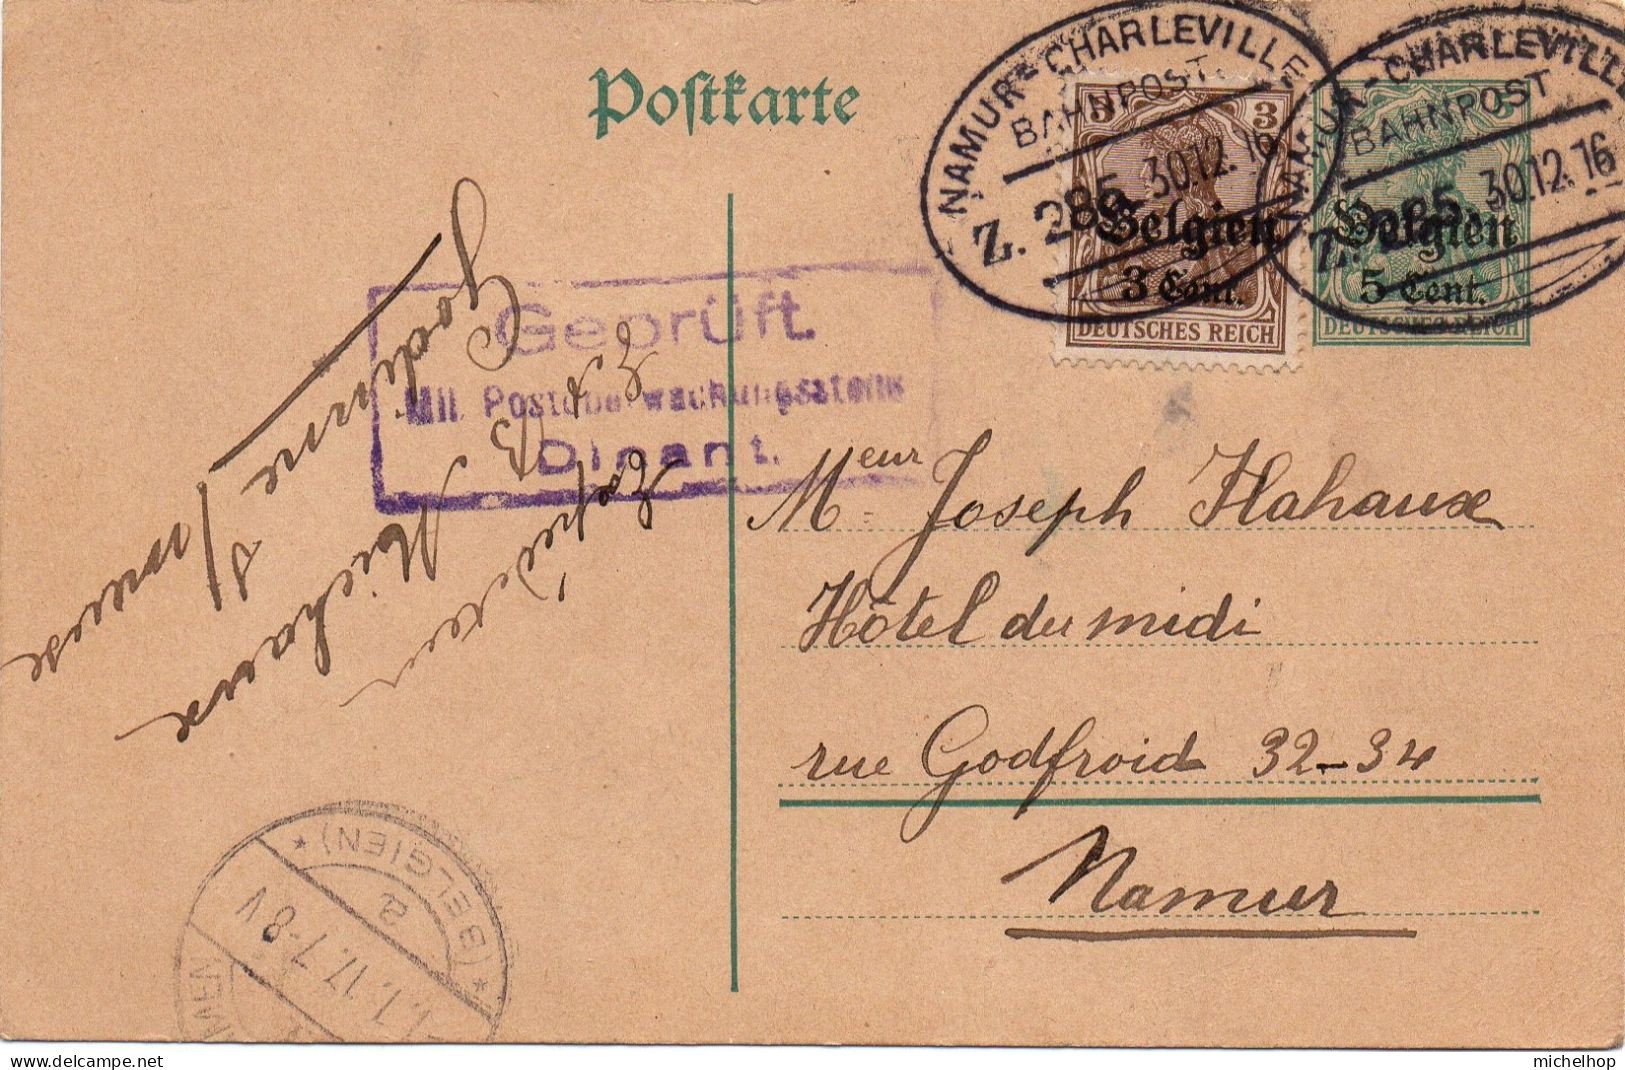 Postkarte
NAMUR=CHARLEVILLE
BAHNPOST
Z. 285 30.12.16
NAMUR-CHARLEVILLE
BAHNPOST
Z. 285 30.12.16
3 3
Belgien
3 Cent.
DEUTSCHES REICH
5
Belgien
5 Cent.
DEUTSCHES REICH
Geprüft.
Mil. Postüberwachungsstelle
Dinant.
Expéditeur
Godinne s/meuse
Meur Joseph Hahaux
Hôtel du midi
rue Godfroid 32-34
Namur
* (BELGIEN) *
2
1.1.17. 7-8V
delcampe.net
michelhop